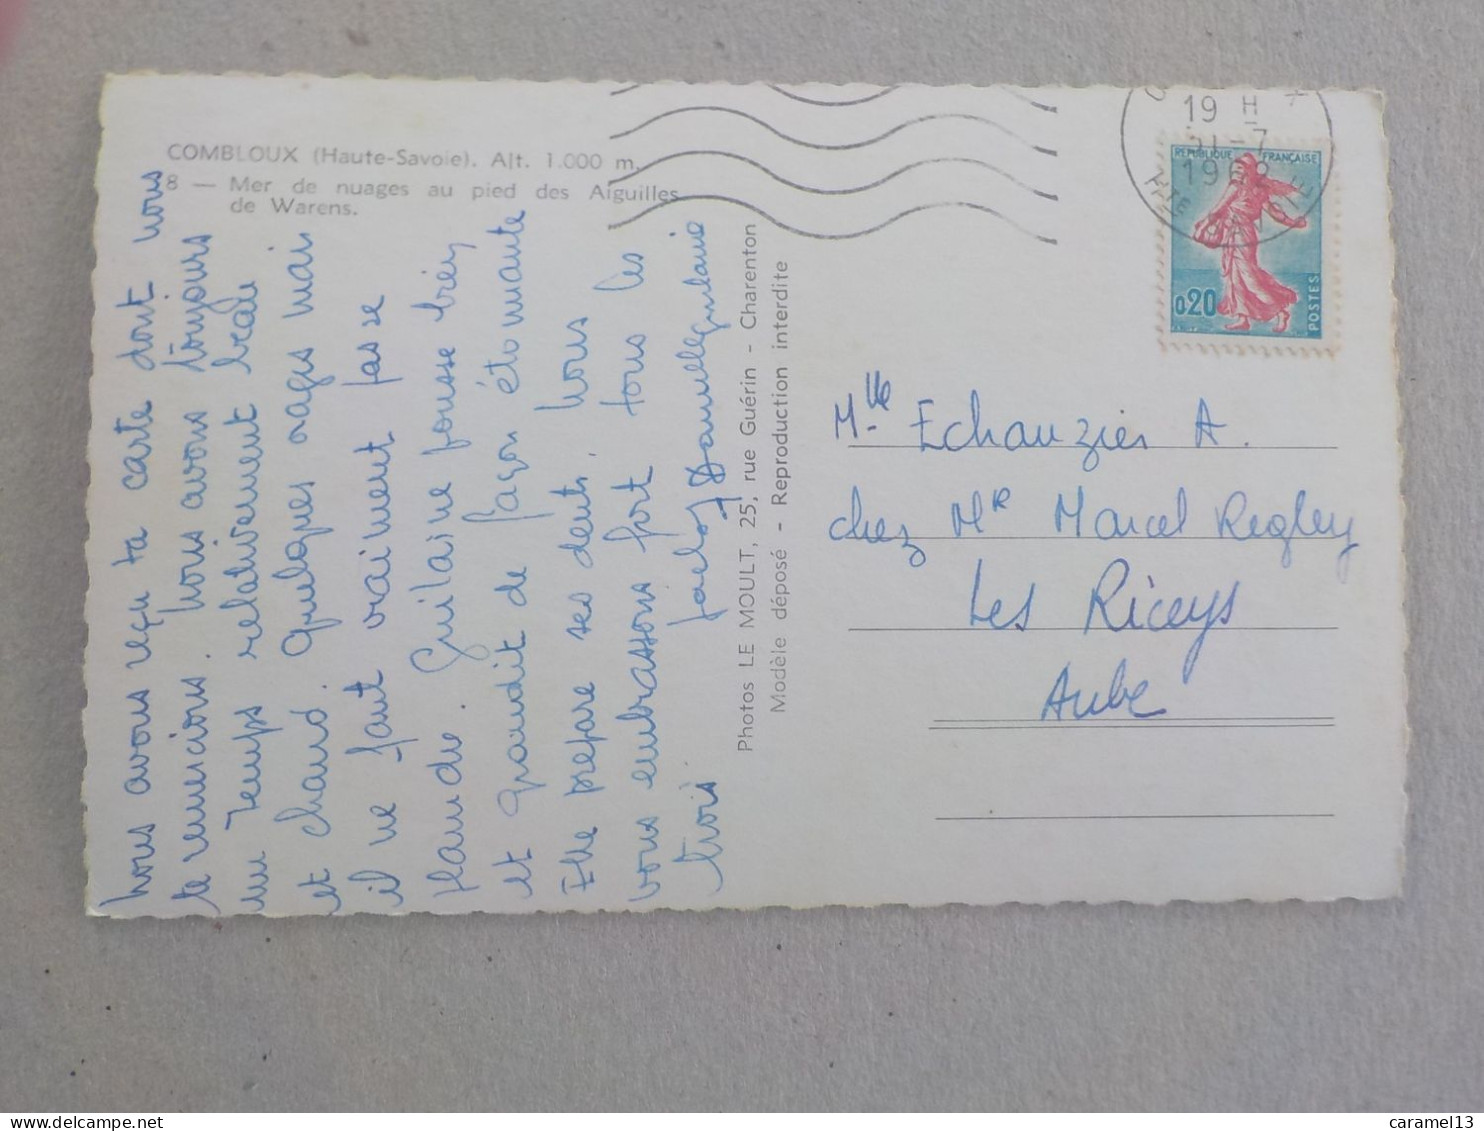 COMBLOUX (Haute-Savoie). Alt. 1.000 m.
8 — Mer de nuages au pied des Aiguilles
de Warens.
nous avons reçu ta carte dont nous
te remercions. nous avons toujours
un temps relativement beau
et chaud. Quelques orages mais
il ne faut vraiment pas se
plaindre. Guilaine pousse bien
et grandit de façon étonnante
Elle prepare ses dents. nous
vous embrassons fort tous les
trois
Photos LE MOULT, 25, rue Guérin - Charenton
Modèle déposé - Reproduction interdite
19 H
31-7
1962
HTE SAVOIE
REPUBLIQUE FRANÇAISE
0,20
POSTES
Mlle Echauzier A.
chez Mr Marcel Regley
Les Riceys
Aube
delcampe.net
caramel13